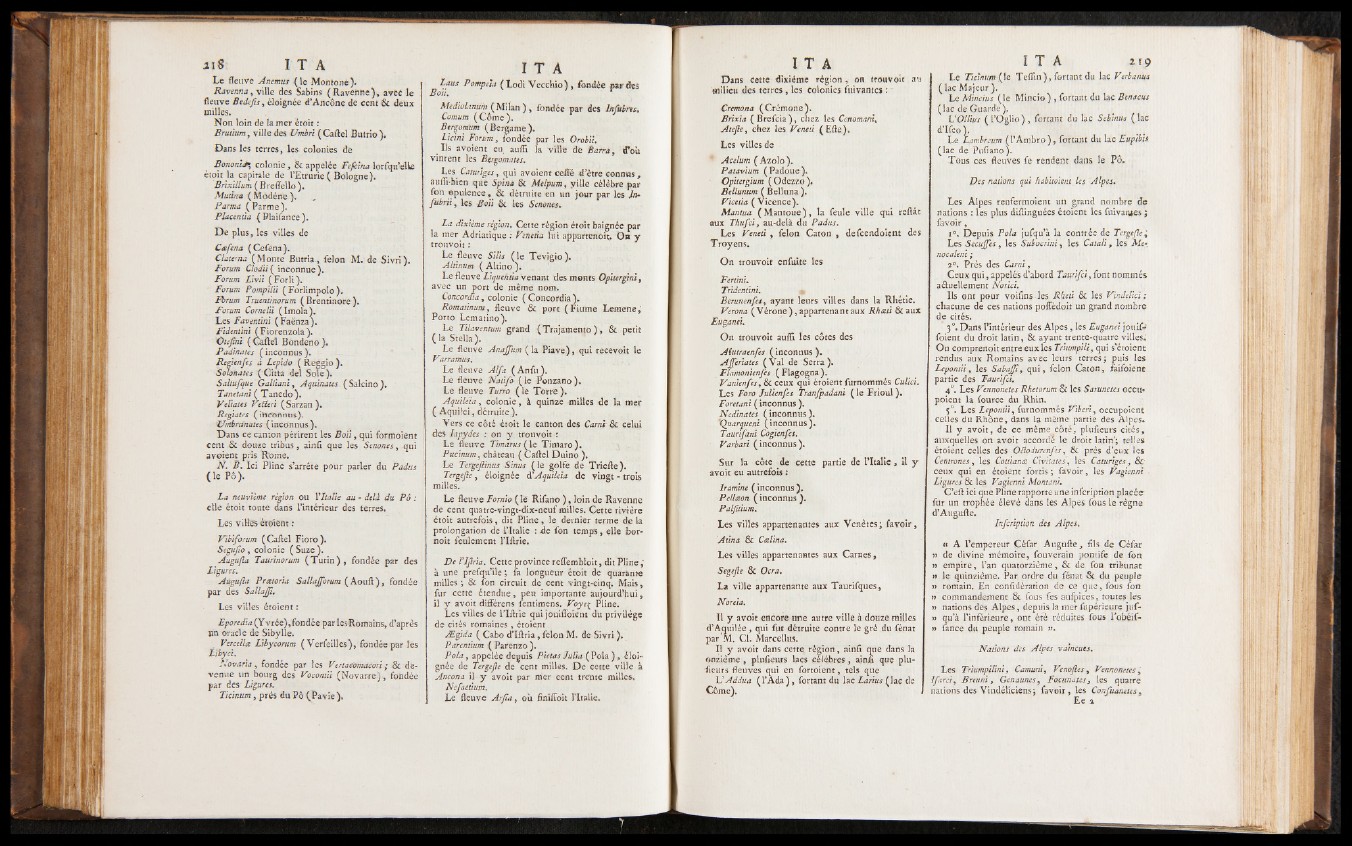 218 I T A
Le fleuve Anemus (le Montone).
Ravenna, ville des Sabins (Ravenne), avec le
fleuve Bedesis, éloignée d'Ancône de cent & deux
milles.
Non loin de la mer étoit :
Brutium, ville des Umbri (Castel Butrio).
Dans les terres, les colonies de
Bononia, colonie, & appelée Felsina lorsqu'elle
étoit la capitale de l'Etrurie (Bologne).
Brixillum (Bressello).
Mutina (Modène).
Parma (Parme).
Placentia (Plaisance).
De plus, les villes de
Cæsena (Cesena).
Claterna (Monte Butria, selon M. de Sivri).
Forum Clodii (inconnue).
Forum Livii (Forli).
Forum Pompilii (Forlimpolo).
Forum Truentinorum (Brentinore).
Forum Cornelii (Imola).
Les Faventini (Faënza).
Fidentini (Fiorenzola).
Otesini (Castel Bondeno).
Padinates (inconnus).
Regienses à Lepido (Reggio).
Solonates (Citta del Sole).
Saltusque Galliani, Aquinates (Salcino).
Tanetani (Tanedo).
Veliates Vetteri (Sarzan).
Regiates (inconnus).
Umbranates (inconnus).
Dans ce canton périrent les Boii, qui formoient
cent & douze tribus, ainsi que les Senones, qui
avoient pris Rome.
N. B. Ici Pline s'arrête pour parler du Padus
(le Pô).
La neuvième région ou l'Italie au-delà du Pô :
elle étoit toute dans l'intérieur des terres.
Les villes étoient :
Vibiforum (Castel Fioro).
Segusio, colonie (Suze).
Augusta Taurinorum (Turin), fondée par des
Ligures.
Augusta Prætoria Sallassorum (Aoust), fondée
par des Sallassi.
Les villes étoient :
Eporedia (Yvrée), fondée par les Romains, d'après
un oracle de Sibylle.
Vercellæ Libycorum (Verseilles), fondée par les
Libyci.
Novaria, fondée par les Vertacomacori ; & de-
venue un bourg des Vocontii (Novarre), fondée
par des Ligures.
Ticinum, près du Pô (Pavie).
I T A
Laus Pompeia (Lodi Vecchio), fondée par des
Boii.
Mediolanum (Milan), fondée par des Insubres.
Comum (Côme).
Bergomum (Bergame).
Licini Forum, fondée par les Orobii.
Ils avoient eu aussi la ville de Barra, d'où
vinrent les Bergomates.
Les Caturiges, qui avoient cessé d'être connus,
aussi-bien que Spina & Melpum, ville célèbre par
son opulence, & détruite en un jour par les In-
subrii, les Boii & les Senones.
La dixième région. Cette région étoit baignée par
la mer Adriatique : Venetia lui appartenoit. On y
trouvoit :
Le fleuve Silis (le Tevigio).
Altinum (Altino).
Le fleuve Liquentia venant des monts Opitergini,
avec un port de même nom.
Concordia, colonie (Concordia).
Romatinum, fleuve & port (Fiume Lemene,
Porto Lematino).
Le Tilaventum grand (Trajamento), & petit
(la Stella).
Le fleuve Anassum (la Piave), qui recevoit le
Varramus.
Le fleuve Alsa (Ansu).
Le fleuve Natiso (le Ponzano).
Le fleuve Turio (le Torre).
Aquileia, colonie, à quinze milles de la mer
(Aquilei, détruite).
Vers ce côté étoit le canton des Carni & celui
des Iapydes : on y trouvoit :
Le fleuve Timarus (le Timaro).
Pucinum, château (Castel Duino).
Le Tergestinus Sinus (le golfe de Trieste).
Tergeste, éloignée d'Aquileia de vingt-trois
milles.
Le fleuve Formio (le Rifano), loin de Ravenne
de cent quatre-vingt-dix-neuf milles. Cette rivière
étoit autrefois, dit Pline, le dernier terme de la
prolongation de l'Italie : de son temps, elle bor-
noit seulement l'Istrie.
De l'Istria. Cette province ressembloit, dit Pline,
à une presqu'île ; sa longueur étoit de quarante
milles ; & son circuit de cent vingt-cinq. Mais,
sur cette étendue, peu importante aujourd'hui,
il y avoit différens sentimens. Voyez Pline.
Les villes de l'Istrie qui jouissoient du privilége
de cités romaines, étoient
Ægida (Cabo d'Istria, selon M. de Sivri).
Parentium (Parenzo).
Pola, appelée depuis Pietas Julia (Pola), éloi-
gnée de Tergeste de cent milles. De cette ville à
Ancona il y avoit par mer cent trente milles.
Nesactium.
Le fleuve Arsia, où finissoit l'Italie.
I T A
Dans cette dixième région, on trouvoit au
milieu des terres, les colonies suivantes :
Cremona (Crémone).
Brixia (Brescia), chez les Cenomani.
Ateste, chez les Veneti (Este).
Les villes de
Acelum (Azolo).
Patavium (Padoue).
Opitergium (Odezzo).
Bellunum (Belluna).
Vicetia (Vicence).
Mantua (Mantoue), la seule ville qui restât
aux Thusci, au-delà du Padus.
Les Veneti, selon Caton, descendoient des
Troyens.
On trouvoit ensuite les
Fertini.
Tridentini.
Berunenses, ayant leurs villes dans la Rhétie.
Verona (Vérone), appartenant aux Rhæti & aux
Euganei.
On trouvoit aussi les côtes des
Alutraenses (inconnus).
Asseriates (Val de Serra).
Flamonienses (Flagogna).
Vanienses, & ceux qui étoient surnommés Culici.
Les Foro Julienses Transpadani (le Frioul).
Foretani (inconnus).
Nedinates (inconnus).
Quarqueni (inconnus).
Taurisani Cogienses.
Varbari (inconnus).
Sur la côte de cette partie de l'Italie, il y
avoit eu autrefois :
Iramine (inconnus).
Pellaon (inconnus).
Palsitium.
Les villes appartenantes aux Venètes ; savoir,
Atina & Cælina.
Les villes appartenantes aux Carnes,
Segeste & Ocra.
La ville appartenante aux Taurisques,
Noreia.
Il y avoit encore une autre ville à douze milles
d'Aquilée, qui fut détruite contre le gré du sénat
par M. Cl. Marcellus.
Il y avoit dans cette région, ainsi que dans la
onzième, plusieurs lacs célèbres, ainsi que plu-
sieurs fleuves qui en sortoient, tels que
L'Addua (l'Ada), sortant du lac Larius (lac de
Côme).
I T A 219
Le Ticinum (le Tessin), sortant du lac Verbanus
(lac Majeur).
Le Mincius (le Mincio), sortant du lac Benacus
(lac de Guarde).
L'Ollius (l'Oglio), sortant du lac Sebinus (lac
d'Iseo).
Le Lambrum (l'Ambro), sortant du lac Eupilis
(lac de Pusiano).
Tous ces fleuves se rendent dans le Pô.
Des nations qui habitoient les Alpes.
Les Alpes renfermoient un grand nombre de
nations : les plus distinguées étoient les suivantes ;
savoir,
1°. Depuis Pola jusqu'à la contrée de Tergeste ;
Les Secusses, les Subocrini, les Catali, les Me-
nocaleni ;
2°. Près des Carni,
Ceux qui, appelés d'abord Taurisci, sont nommés
actuellement Norici.
Ils ont pour voisins les Rhæti & les Vindelici ;
chacune de ces nations possédoit un grand nombre
de cités.
3°. Dans l'intérieur des Alpes, les Euganei jouis-
soient du droit latin, & ayant trente-quatre villes.
On comprenoit entre eux les Triumpili, qui s'étoient
rendus aux Romains avec leurs terres ; puis les
Lepontii, les Sabassi, qui, selon Caton, faisoient
partie des Taurisci.
4°. Les Vennonetes Rhetorum & les Sarunetes occu-
poient la source du Rhin.
5°. Les Lepontii, surnommés Viberi, occupoient
celles du Rhône, dans la même partie des Alpes.
Il y avoit, de ce même côté, plusieurs cités,
auxquelles on avoit accordé le droit latin ; telles
étoient celles des Octodurenses, & près d'eux les
Centrones, les Cottianæ Civitates, les Caturiges, &
ceux qui en étoient sortis ; savoir, les Vagienni
Ligures & les Vagienni Montani.
C'est ici que Pline rapporte une inscription placée
sur un trophée élevé dans les Alpes sous le règne
d'Auguste.
Inscription des Alpes.
« A l'empereur César Auguste, fils de César
» de divine mémoire, souverain pontife de son
» empire, l'an quatorzième, & de son tribunat
» le quinzième. Par ordre du sénat & du peuple
» romain. En considération de ce que, sous son
» commandement & sous ses auspices, toutes les
» nations des Alpes, depuis la mer supérieure jus-
» qu'à l'inférieure, ont été réduites sous l'obéis-
» sance du peuple romain ».
Nations des Alpes vaincues.
Les Triumpilini, Camuni, Venostes, Vennonetes,
Isarci, Breuni, Genaunes, Focunates, les quatre
nations des Vindéliciens ; savoir, les Consuanetes,
Ee 2